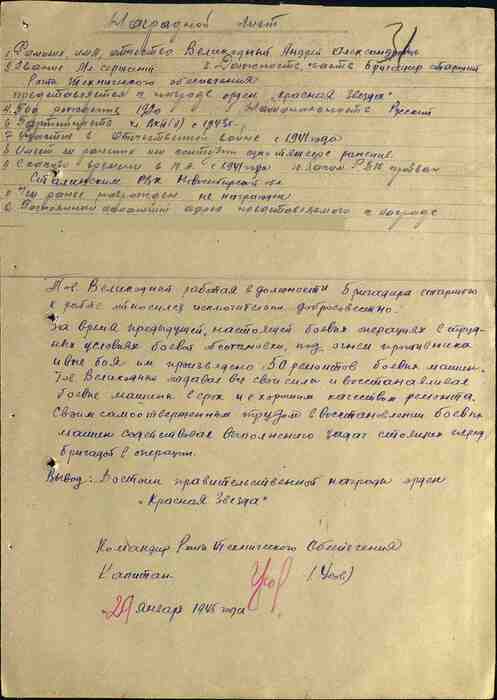 Наградной лист
31
1. Фамилия, имя, отчество Великодный Андрей Александрович
2. Звание Мл. сержант 3. Должность, часть Бригадир старший
Рота Технического обеспечения
представляется к награде орден "Красная Звезда"
4. Год рождения Национальность Русский
6. Партийность ВКП(б) с 1943г.
7. Участие в Отечественной войне с 1941 года
8. Имеет ли ранения или контузии одно тяжелое ранение.
9. С какого времени в К.А. с 1941 года 10. Каким РВК призван
Сталинским РВК Новосибирской обл.
Чем ранее награжден не награжден
Постоянный домашний адрес представляемого к награде
Тов. Великодный работая в должности бригадира старшего
к работе относился исключительно добросовестно.
За время предыдущей, настоящей боевых операциях в труд-
ных условиях боевой обстановки, под огнем противника
и вне боя им произведено 50 ремонтов боевых машин.
Тов. Великодный отдавал все свои силы и восстанавливал
боевые машины в срок и с хорошим качеством ремонта.
Своим самоотверженным трудом в восстановлении боевых
машин содействовал выполнению задач стоящих перед
бригадой в операции.
Вывод: Достоин правительственной награды орден
"Красная Звезда"
Командир Роты Технического Обеспечения
Капитан (Усов)
29 января 1945 года